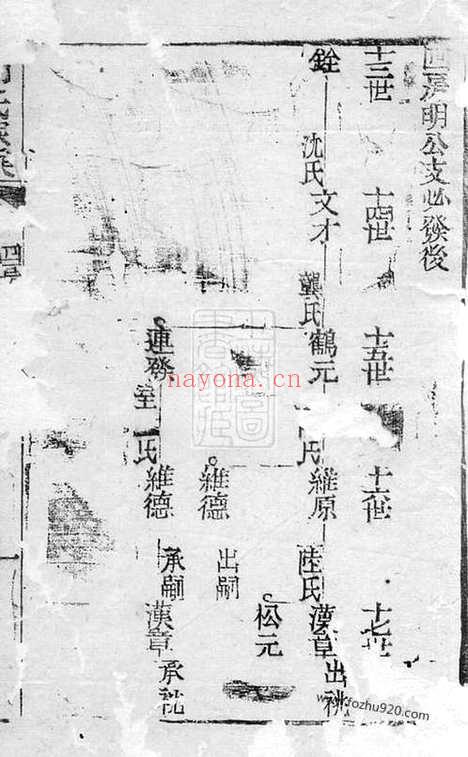 明公支必發後
十三世 十四世 十五世 十六世 十七世
銓 沈氏 文才 龔氏 鶴元 氏 維原 陸氏 漢章 出祧
松元
維德 出嗣
連發 室 氏 維德 承嗣 漢章 承祧
nayona.cn
www.fozhu920.com